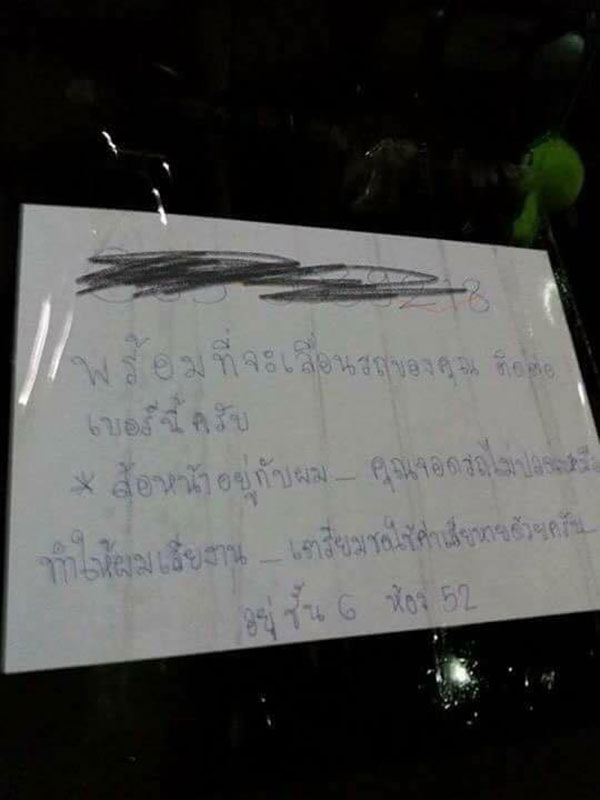 พร้อมที่จะเลื่อนรถของคุณ ติดต่อ
เบอร์นี้ครับ
* ล้อหน้าอยู่กับผม _ คุณจอดรถไม่ปลดเกียร์
ทำให้ผมเสียงาน _ เตรียมชดใช้ค่าเสียหายด้วยครับ
อยู่ ชั้น 6 ห้อง 52